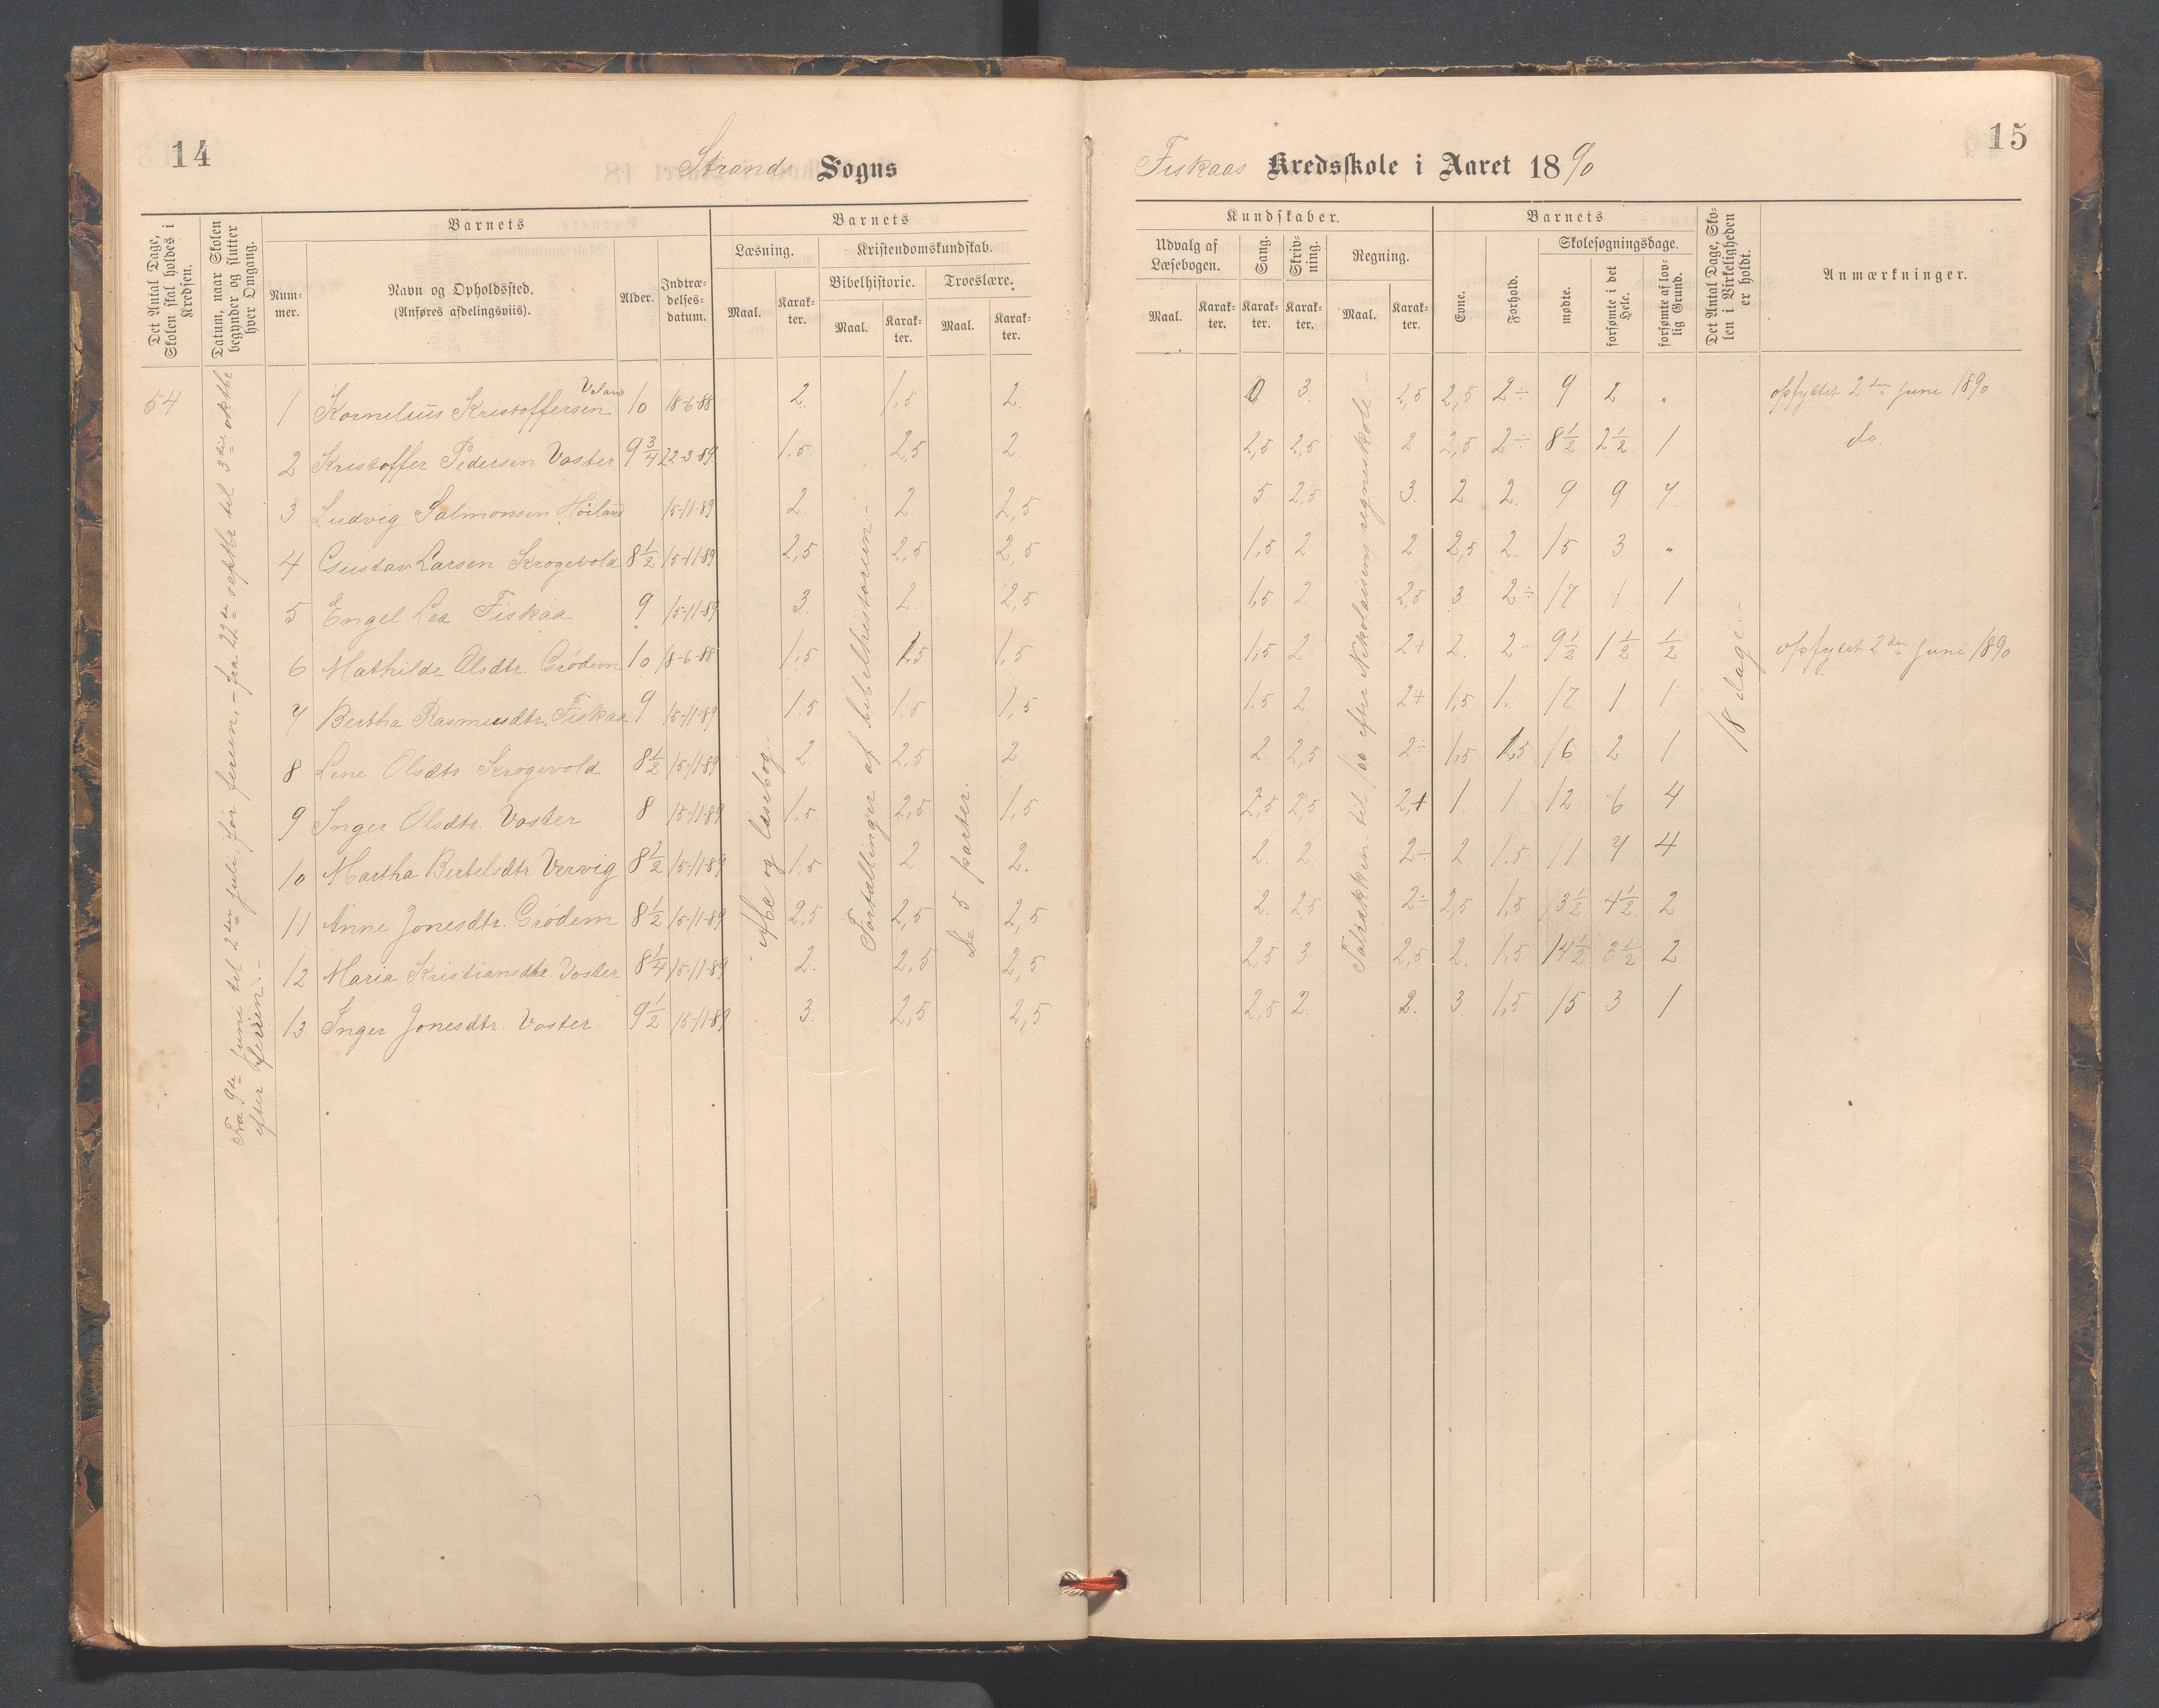 14
Strands Sogns
Det Antal Dage, Skolen skal holdes i Kredsen.
Datum, naar Skolen begynder og slutter hver Omgang.
Barnets
Num-mer.
Navn og Opholdssted.
(Anføres afdelingsviis).
Alder.
Indtræ-delses-datum.
Barnets
Læsning.
Maal.
Karak-ter.
Kristendomskundskab.
Bibelhistorie.
Maal.
Karak-ter.
Troeslære.
Maal.
Karak-ter.
54
Fra 9de juni til 2den juli, før ferien, - fra 22de septbr til 3die oktbr
efter ferien. -
Abc og læsebog.
Fortællinger af bibelhistorien -
De 5 parter.
1 Kornelius Kristoffersen Voland 10 18-6-88 2. 1,5 2.
2 Kristoffer Pedersen Voster 9 3/4 22-3-89 1.5 2,5 2
3 Ludvig Salmonsen Høiland 15-11-89 2. 2 2,5
4 Gustav Larsen Krogevold 8 1/2 15-11-89 2,5 2,5 2,5
5 Engel Lea Fiskaa 9 15-11-89 3. 2. 2,5
6 Mathilde Olsdtr. Grödem 10 18-6-88 1,5 1.5 1,5
7 Bertha Rasmusdtr. Fiskaa 9 15-11-89 1.5 1.5 1,5
8 Lene Olsdtr. Krogevold 8 1/2 15-11-89 2. 2,5 2
9 Inger Olsdtr. Voster 8 15-11-89 1.5. 2,5 1,5
10 Martha Bertelsdtr Vervig 8 1/2 15-11-89 1,5 2 2.
11 Anne Jonesdtr. Grödem 8 1/2 15-11-89 2,5 2,5 2,5
12 Maria Kristiansdtr Voster 8 1/4 15-11-89 2. 2,5 2,5
13 Inger Jonesdtr. Voster 9 1/2 15-11-89 3. 2,5 2,5
15
Fiskaas Kredsskole i Aaret 1890
Kundskaber.
Udvalg af Læsebogen.
Maal.
Karak-ter.
Sang.
Karak-ter.
Skriv-ning.
Karak-ter.
Regning.
Maal.
Karak-ter.
Barnets
Evne.
Forhold.
Skolesøgningsdage.
mødte.
forsømte i det Hele.
forsømte af lov-lig Grund.
Det Antal Dage, Sko-len i Virkeligheden er holdt.
Anmærkninger.
Talrækken til 100 efter Nikolaisens regneskole. -
18 dage. -
0 3. 2,5 2,5 2÷ 9 2 " opflyttet 2den juni 1890
2,5 2,5 2 2,5 2÷ 8 1/2 2 1/2 1 do.
5. 2,5 3. 2 2. 9 9 7
1,5 2 2 2,5 2. 15 3 "
1,5 2 2,5 3. 2÷ 17 1 1
1,5 2 2+ 2. 2- 9 1/2 1 1/2 1/2 opflyttet 2den juni 1890
1.5 2 2+ 1,5 1. 17 1 1
2. 2,5 2÷ 1,5 1,5 16 2 1
2,5 2,5 2,+ 1. 1 12 6 4
2. 2 2÷ 2. 1.5 11 7 4
2. 2,5 2÷ 2,5 1,5 13 1/2 4 1/2 2
2,5 3. 2,5 2. 1.5 14 1/2 3 1/2 2
2,5 2. 2. 3. 1,5 15 3 1